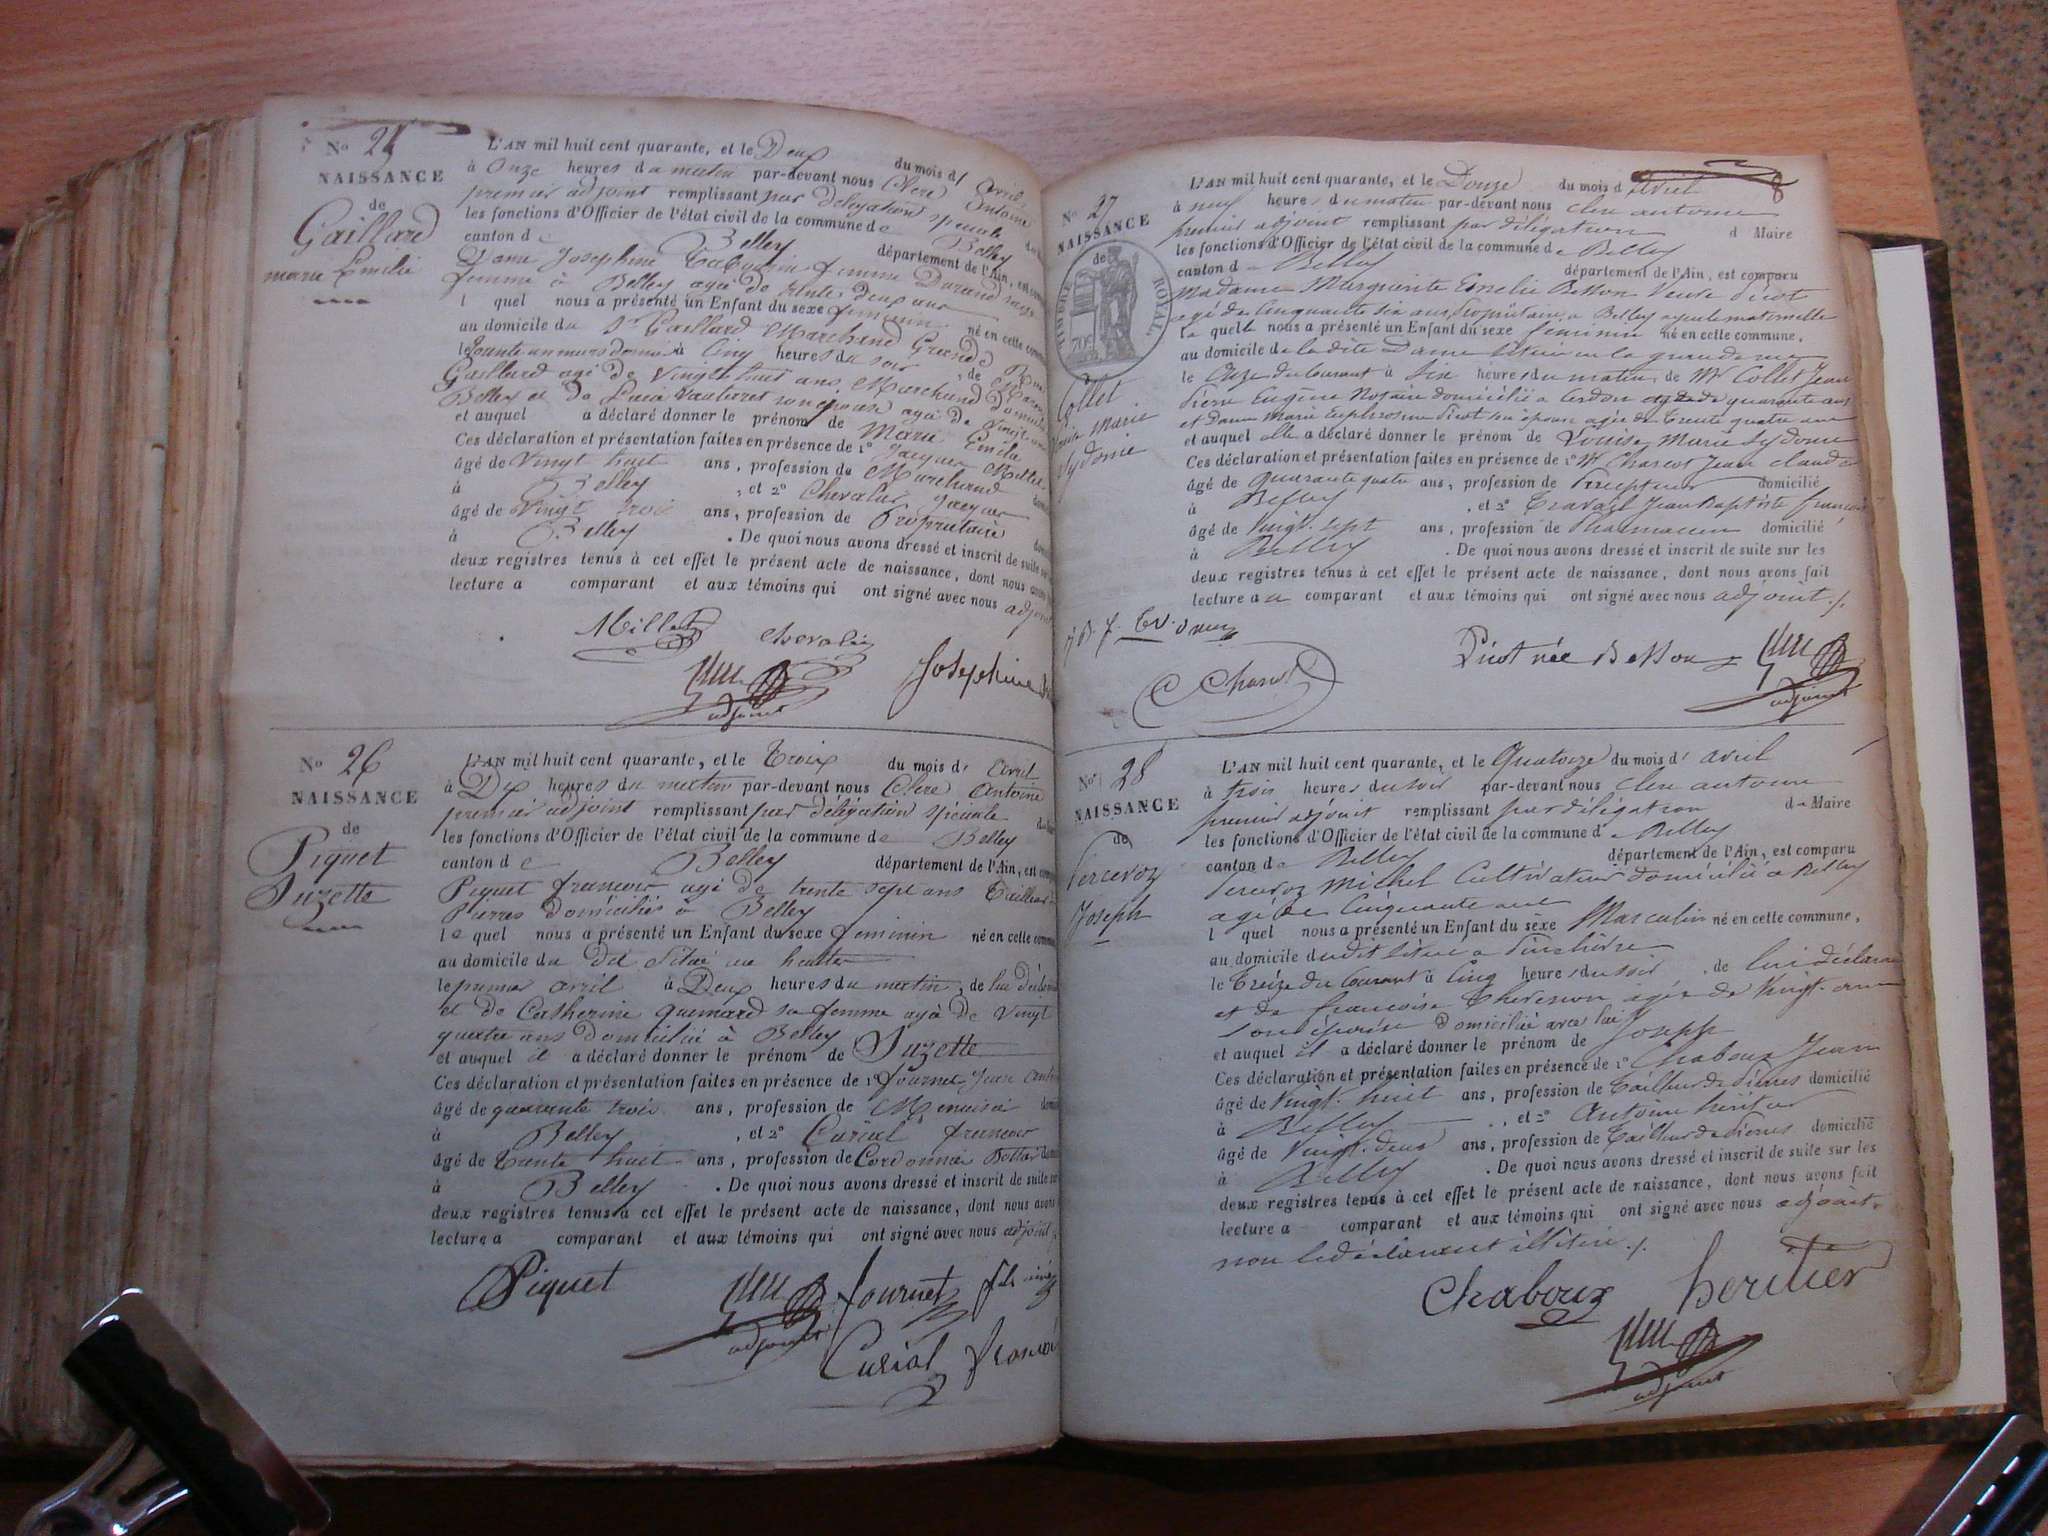 No 25
NAISSANCE
de
Gaillard
marie Emilie
L'AN mil huit cent quarante, et le Deux du mois d' Avril
à Onze heures du matin par-devant nous Clerc Antoine
premier adjoint remplissant par délégation spéciale
les fonctions d'Officier de l'état civil de la commune de Belley
canton de Belley département de l'Ain, est
Dame Josephine femme Durand sage
femme à Belley agé de trente deux ans
l quel nous a présenté un Enfant du sexe féminin né en cette
au domicile du Sr Gaillard Marchand Grande Rue
le trente un mars dernier à Cinq heures du soir, de
Gaillard agé de vingt huit ans Marchand
Belley et de son épouse agé de vingt
et auquel a déclaré donner le prénom de Marie Emilie
Ces déclaration et présentation faites en présence de 1° Jacques Millet
âgé de Vingt huit ans, profession de Marchand
à Belley, et 2° Chevalier Jacques
âgé de Vingt trois ans, profession de Propriétaire
à Belley. De quoi nous avons dressé et inscrit de suite sur
deux registres tenus à cet effet le présent acte de naissance, dont nous
lecture a comparant et aux témoins qui ont signé avec nous adjoint
Millet
chevalier
Josephine
adjoint
No 26
NAISSANCE
de
Piquet
Suzette
L'AN mil huit cent quarante, et le Trois du mois d' Avril
à Dix heures du matin par-devant nous Clerc Antoine
premier adjoint remplissant par délégation spéciale
les fonctions d'Officier de l'état civil de la commune de Belley
canton de Belley département de l'Ain, est
Piquet francois agé de trente sept ans Tailleur de
Pierres domiciliés à Belley
le quel nous a présenté un Enfant du sexe feminin né en cette
au domicile du dit Situé au
le premier avril à Deux heures du matin, de lui déclarant
et de Catherine Guimard sa femme agé de Vingt
quatre ans domiciliée à Belley
et auquel il a déclaré donner le prénom de Suzette
Ces déclaration et présentation faites en présence de 1° fournet Jean
âgé de quarante trois ans, profession de Menuisier
à Belley, et 2° Curial francois
âgé de Trente huit ans, profession de Cordonnier Bottier
à Belley. De quoi nous avons dressé et inscrit de suite sur
deux registres tenus à cet effet le présent acte de naissance, dont nous avons
lecture a comparant et aux témoins qui ont signé avec nous adjoint
Piquet
fournet fils
adjoint
Curial francois
8
No 27
NAISSANCE
de
TIMBRE ROYAL
70c
Collet
Louise Marie
Sydonie
L'AN mil huit cent quarante, et le Douze du mois d'avril
à neuf heures du matin par-devant nous clerc antoine
premier adjoint remplissant par délégation d Maire
les fonctions d'Officier de l'état civil de la commune de Belley
canton de Belley département de l'Ain, est comparu
Madame Marguerite Emelie Besson Veuve Picot
agé de Cinquante six ans Propriétaire à Belley ayeule maternelle
la quelle nous a présenté un Enfant du sexe feminin né en cette commune,
au domicile de la dite Dame située en la grande rue
le Onze du Courant à Six heures du matin, de Mr Collet Jean
Pierre Eugène Notaire domicilié à Cerdon agé de quarante ans
et Dame Marie Euphrosine Picot son épouse agée de Trente quatre ans
et auquel elle a déclaré donner le prénom de Louise Marie Sydonie
Ces déclaration et présentation faites en présence de 1° Mr Charcot Jean Claude
âgé de quarante quatre ans, profession de Percepteur domicilié
à Belley, et 2° Travail Jean Baptiste françois
âgé de Vingt-sept ans, profession de Pharmacien domicilié
à Belley. De quoi nous avons dressé et inscrit de suite sur les
deux registres tenus à cet effet le présent acte de naissance, dont nous avons fait
lecture a la comparant et aux témoins qui ont signé avec nous adjoint ./.
Picot née Besson
adjoint
No 28
NAISSANCE
de
Percevoz
Joseph
L'AN mil huit cent quarante, et le Quatorze du mois d' avril
à trois heures du soir par-devant nous clerc antoine
premier adjoint remplissant par délégation du Maire
les fonctions d'Officier de l'état civil de la commune de Belley
canton de Belley département de l'Ain, est comparu
Percevoz Michel Cultivateur domicilié à Belley
agé de Cinquante ans
l quel nous a présenté un Enfant du sexe Masculin né en cette commune,
au domicile dudit situé a
le Treize du Courant à Cinq heures du soir, de lui déclarant
et de françoise agée de Vingt
son épouse domiciliée avec lui
et auquel il a déclaré donner le prénom de Joseph
Ces déclaration et présentation faites en présence de 1° Chaboux Jean
âgé de Vingt-huit ans, profession de Tailleur de Pierres domicilié
à Belley, et 2° Antoine héritier
âgé de Vingt-deux ans, profession de Tailleur de Pierres domicilié
à Belley. De quoi nous avons dressé et inscrit de suite sur les
deux registres tenus à cet effet le présent acte de naissance, dont nous avons fait
lecture a comparant et aux témoins qui ont signé avec nous adjoint.
non le déclarant illitéré ./.
Chaboux
heritier
adjoint